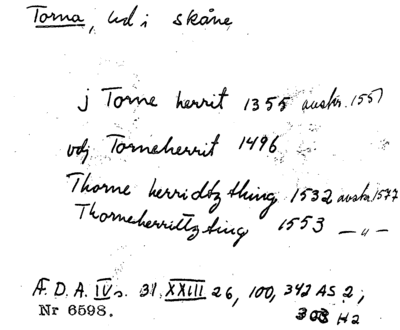 Torna, ud i skåne
j Torne herrit 1355 avskr. 1551
udj Torneherrit 1496
Thorne herridtz thing 1532 avskr 1577
Thorneherrittz ting 1553 — „ —
Æ. D. A. IV s. 31, XXIII 26, 100, 342 AS 2,
308 H2
Nr 6598.